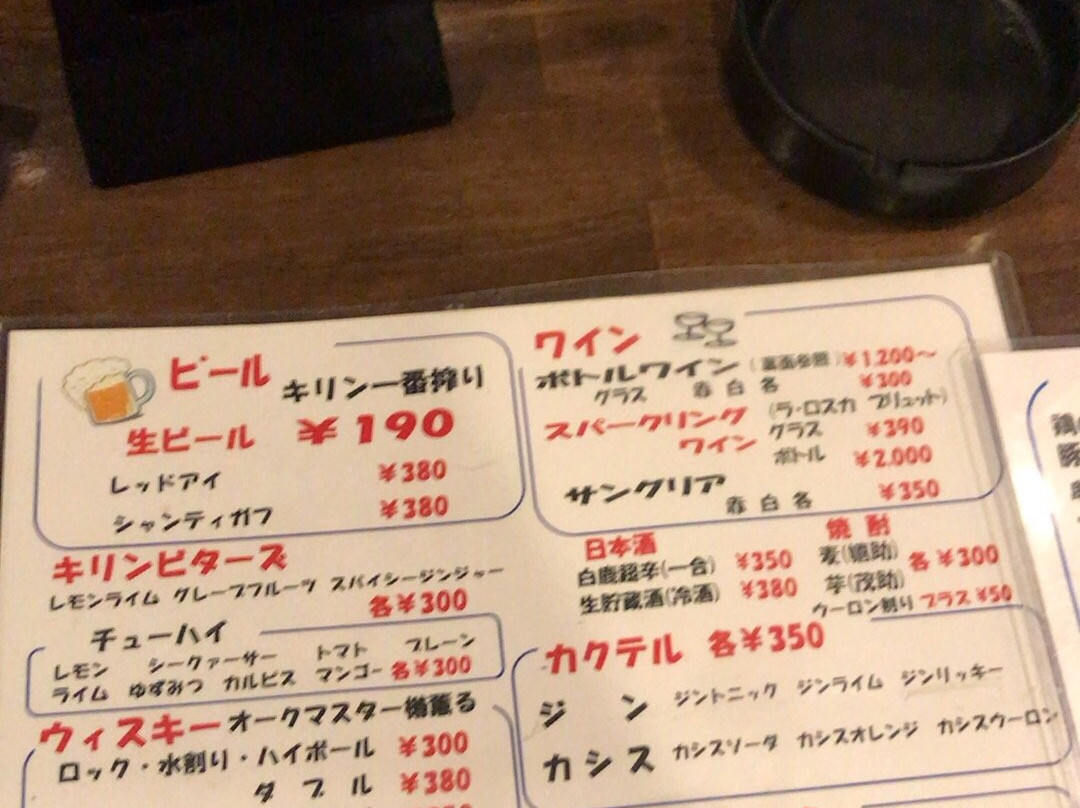 ビール
キリン一番搾り
生ビール ¥190
レッドアイ ¥380
シャンティガフ ¥380
キリンビターズ
レモンライム グレープフルーツ スパイシージンジャー
各¥300
チューハイ
レモン シークァーサー トマト プレーン
ライム ゆずみつ カルピス マンゴー 各¥300
ウィスキー オークマスター樽薫る
ロック・水割り・ハイボール ¥300
ダブル ¥380
ワイン
ボトルワイン (裏面参照) ¥1.200〜
グラス 赤 白 各 ¥300
スパークリング (ラ・ロスカ ブリュット)
ワイン グラス ¥390
ボトル ¥2.000
サングリア
赤 白 各 ¥350
日本酒
白鹿銘辛(一合) ¥350
生貯蔵酒(冷酒) ¥380
焼酎
麦(嬉助)
芋(茂助) 各¥300
ウーロン割り プラス¥50
カクテル 各¥350
ジン ジントニック ジンライム ジンリッキー
カシス カシスソーダ カシスオレンジ カシスウーロン